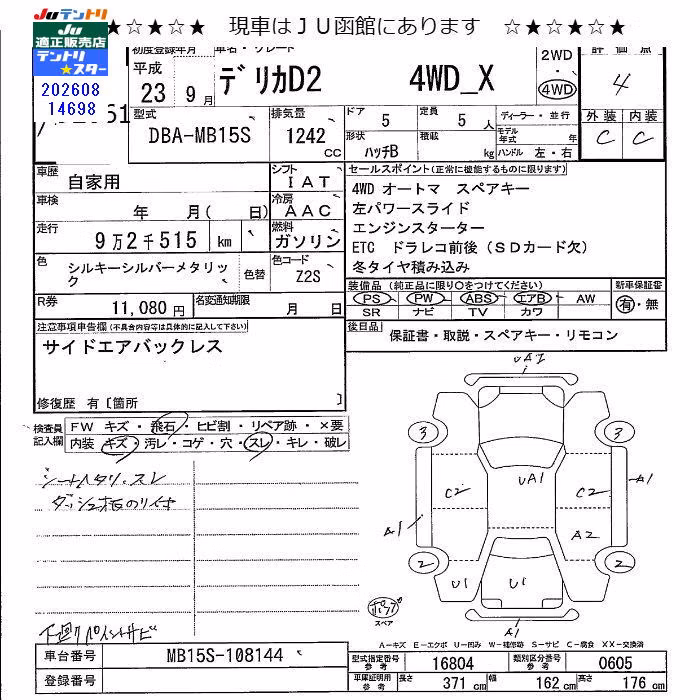 Juテントリ ★☆★☆★ 現車はＪＵ函館にあります ☆★☆★☆★
Ju
適正販売店
テントリ
★スター
202608
14698
初度登録年月 車名・グレード 評価点
平成
23 9月 デリカD2 4WD_X 2WD・4WD 4
型式 排気量 ドア 定員 ディーラー・並行 外装 内装
DBA-MB15S 1242 cc 5 5 人 モデル年式 年 C C
形状 積載
ハッチB kg ハンドル 左・右
車歴 自家用 シフト IAT
セールスポイント (正常に機能するものに限ります)
車検 年 月( 日) 冷房 AAC
4WD オートマ スペアキー
左パワースライド
走行 9万2千515 km 燃料 ガソリン
エンジンスターター
ETC ドラレコ前後（ＳＤカード欠）
冬タイヤ積み込み
色 シルキーシルバーメタリック 色替 色コード Z2S
装備品 (純正品に限り○をつけてください) 新車保証書
PS PW ABS エアB AW 有・無
SR ナビ TV カワ
R券 11,080 円 名変通知期限 月 日
後日品 保証書・取説・スペアキー・リモコン
注意事項申告欄 (不具合内容等は具体的に記入して下さい)
サイドエアバックレス
修復歴 有〔箇所 〕
検査員記入欄 FW キズ・飛石・ヒビ割・リペア跡・×要
内装 キズ・汚レ・コゲ・穴・スレ・キレ・破レ
シートヘタリ・スレ
ダッシュ板のり付
下廻りペイントサビ
UA1
3 3
UA1
C2 C2
A1 A1
A2
2 2
U1 U1
A1
スペア
A-キズ E-エクボ U-凹み W-補修跡 S-サビ C-腐食 XX-交換済
車台番号 MB15S-108144
登録番号
型式指定番号 参考 16804 類別区分番号 参考 0605
車庫証明用 参考 長さ 371 cm 幅 162 cm 高さ 176 cm